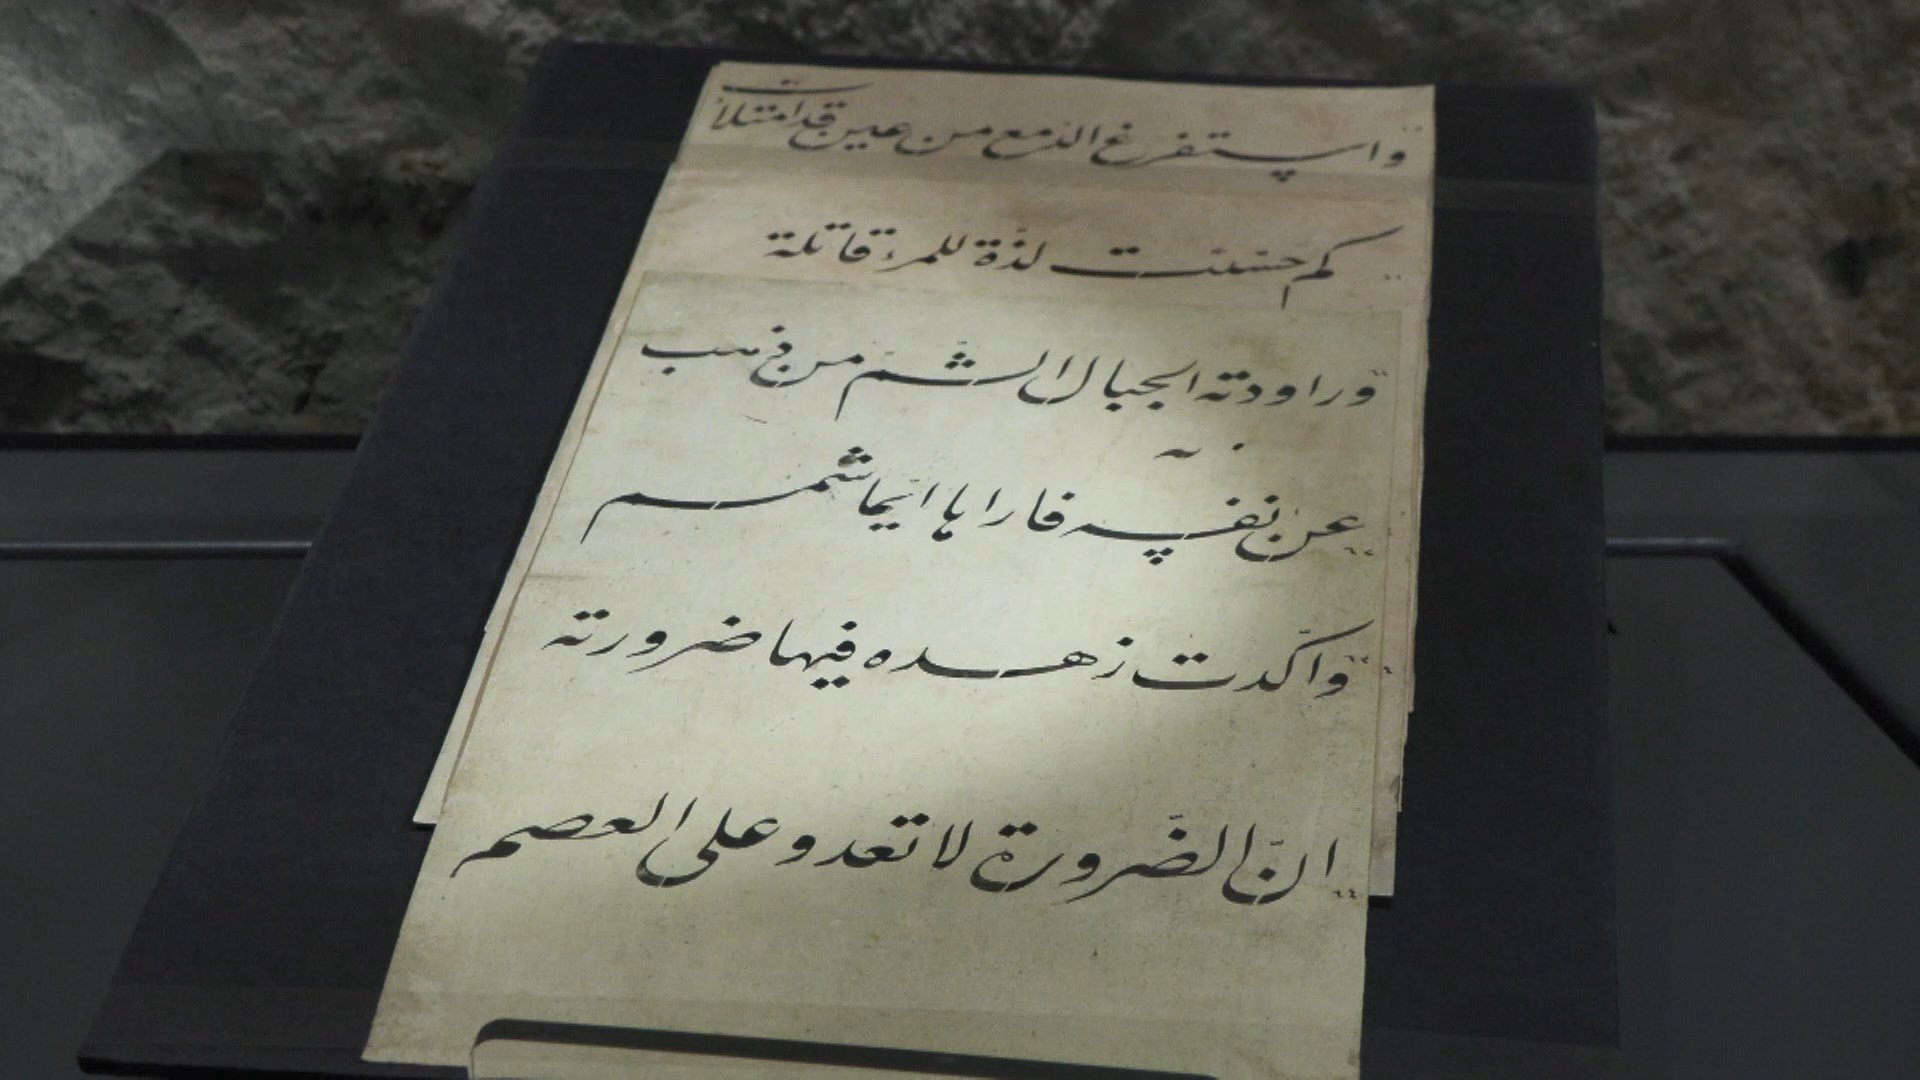 واستفرغ الدّمع من عين قد امتلأت
كم حسّنت لذّة للمرء قاتلة
وراودته الجبال الشّمّ من ذهب
عن نفسه فاراها ايّما شمم
واكّدت زهده فيها ضرورته
انّ الضّرورة لا تعدو على العصم